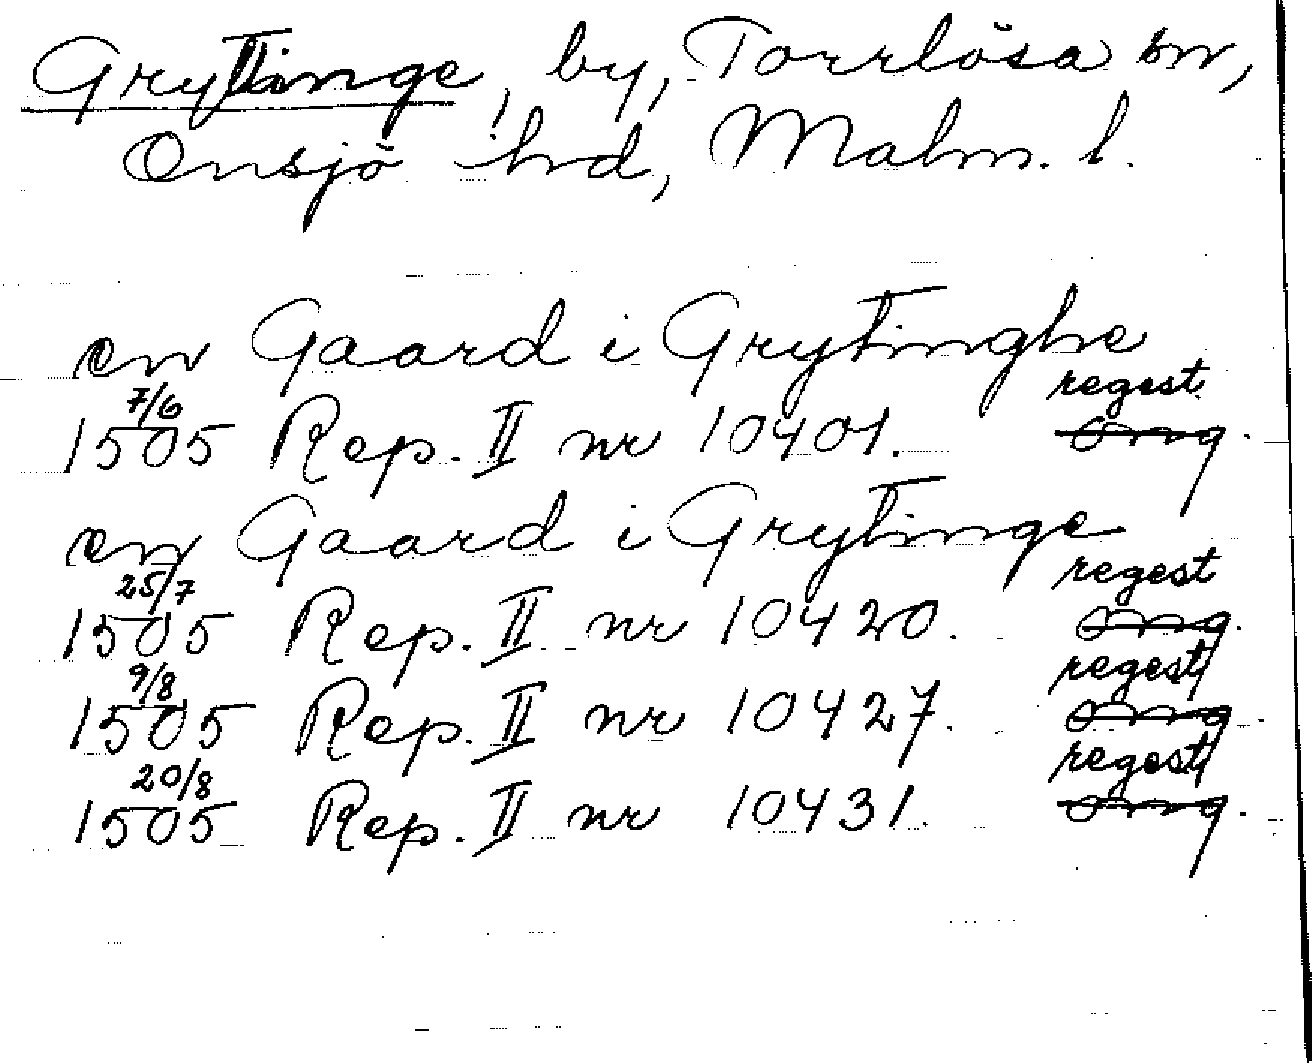 Gryttinge, by, Torrlösa sn,
Onsjö hd, Malm. l.
en Gaard i Grytinghe
7/6 regest
1505 Rep. II nr 10401. omg.
en Gaard i Grytinge
25/7 regest
1505 Rep. II nr 10420. omg.
9/8 regest
1505 Rep. II nr 10427. omg.
20/8 regest
1505 Rep. II nr 10431. omg.